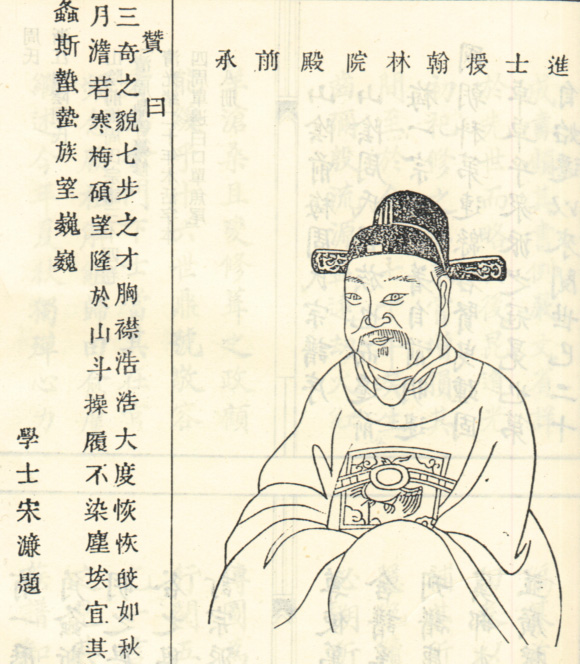 進士授翰林院殿前承
贊曰
三奇之貌七步之才胸襟浩浩大度恢恢皎如秋
月澹若寒梅碩望隆於山斗操履不染塵埃宜其
螽斯蟄蟄族望巍巍
學士宋濂題